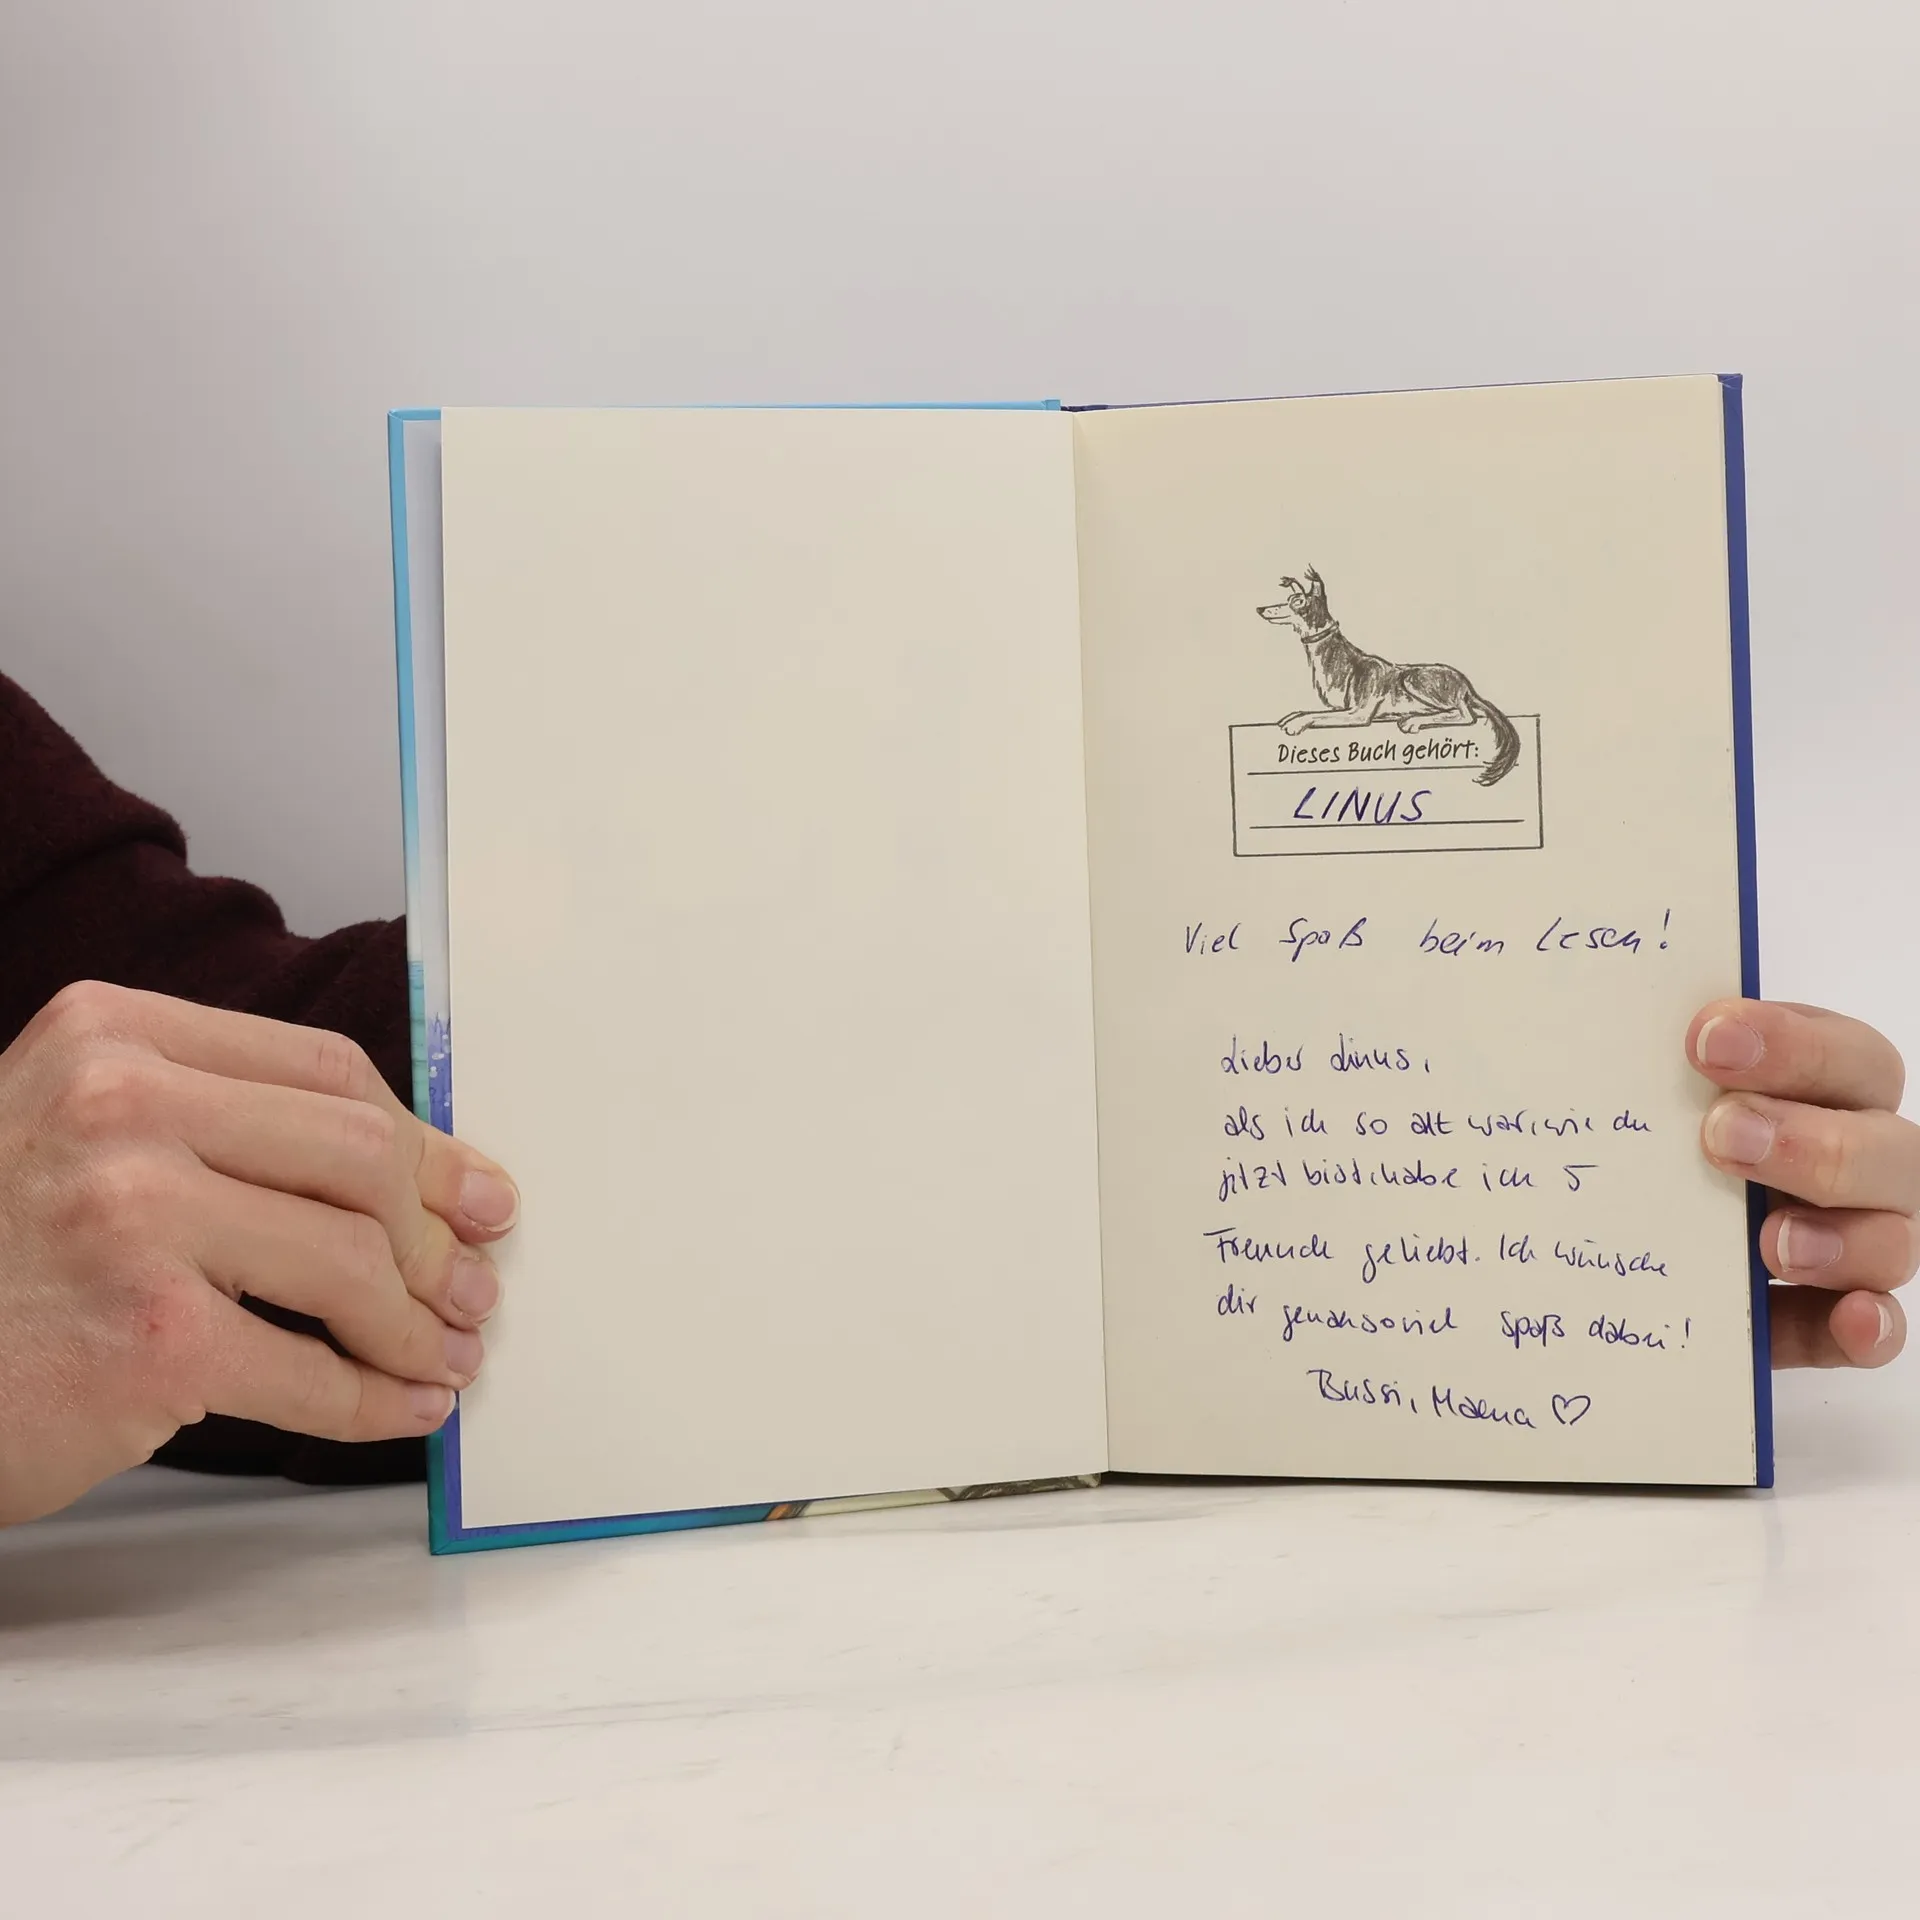 Dieses Buch gehört:
LINUS
Viel Spaß beim Lesen!
Lieber Linus,
als ich so alt war, wie du
jetzt bist, habe ich 5
Freunde geliebt. Ich wünsche
dir genausoviel Spaß dabei!
Bussi,